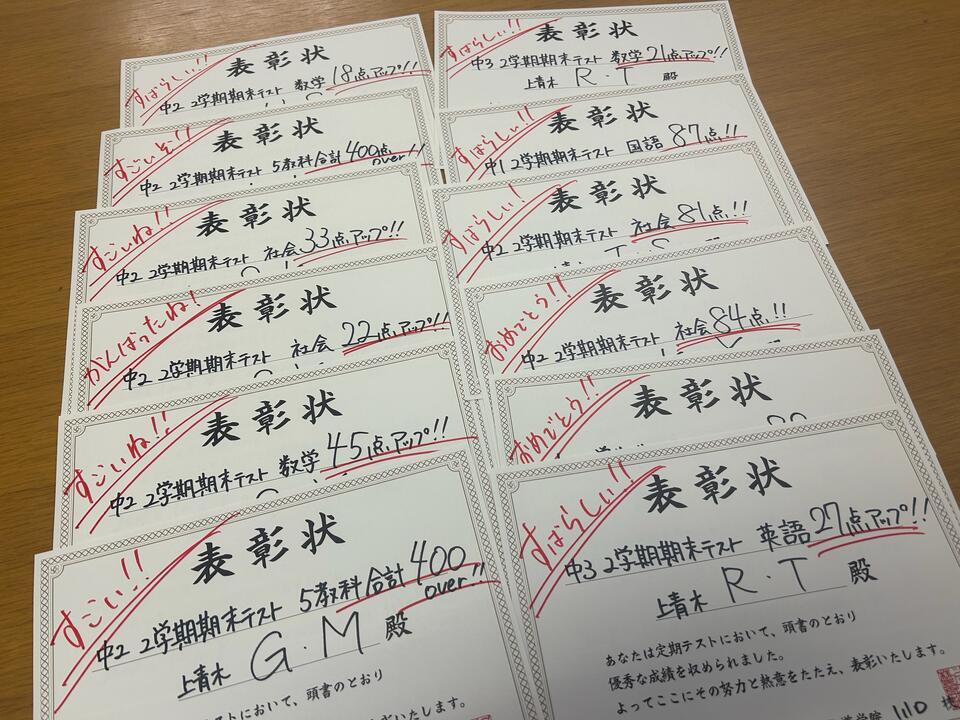 すばらしい!!
表彰状
中2 2学期期末テスト 数学 18点アップ!!
すごいぞ!!
表彰状
中2 2学期期末テスト 5教科合計 400点
over!!
すごいね!!
表彰状
中2 2学期期末テスト 社会 33点アップ!!
がんばったね!
表彰状
中2 2学期期末テスト 社会 22点アップ!!
すごいね!!
表彰状
中2 2学期期末テスト 数学 45点アップ!!
すごい!!
表彰状
中2 2学期期末テスト 5教科合計 400
over!!
上青木 G.M 殿
において、頭書のとおり
すばらしい!!
表彰状
中3 2学期期末テスト 数学 21点アップ!!
上青木 R・T 殿
すばらしい!!
表彰状
中1 2学期期末テスト 国語 87点!!
すばらしい!
表彰状
中2 2学期期末テスト 社会 81点!!
おめでとう!!
表彰状
中2 2学期期末テスト 社会 84点!!
おめでとう!!
表彰状
すばらしい!!
表彰状
中3 2学期期末テスト 英語 27点アップ!!
上青木 R・T 殿
あなたは定期テストにおいて、頭書のとおり
優秀な成績を収められました。
よってここにその努力と熱意をたたえ、表彰いたします。